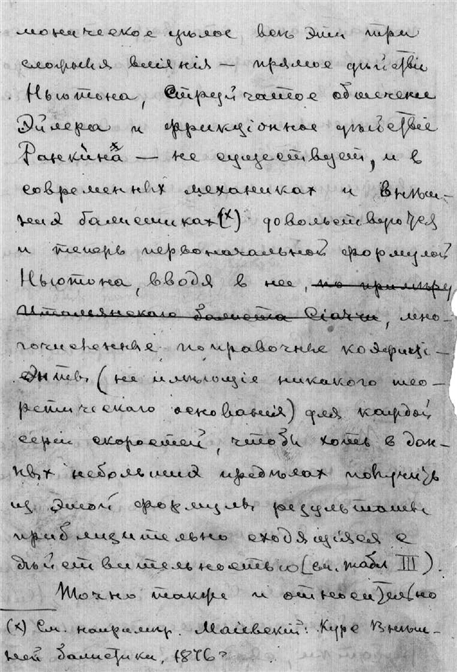 моническое цѣлое всѣ эти три
сложныя вліянія — прямое дѣйствіе
Ньютона, струйчатое обтеченіе
Эйлера и фрикціонное дѣйствіе
Ранкина — не существуетъ, и в
современных механиках и внѣш-
них балистиках(x) довольствуются
и теперь первоначальной формулой
Ньютона, вводя в нее, по примѣру
Итальянскаго балиста Сіаччи, мно-
гочисленные поправочные коэфиці-
энты (не имѣющіе никакого тео-
ретическаго основанія) для каждой
серіи скоростей, чтобы хоть в дан-
ных небольших предѣлах получить
из этой формулы результаты
приблизительно сходящіяся с
дѣйствительностью (см. табл III).
Точно также и относительно
(x) См. напримѣр. Маіевскій: Курс Внѣш-
ней балистики, 18 6 г